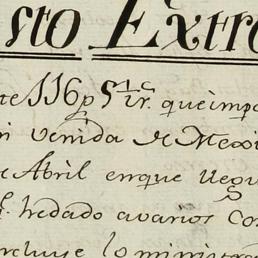 sto Extr
te 116 p 5 que imp
venida de Mexi
Abril enque lleg
hedado avarios Co
ncluye lo ministra